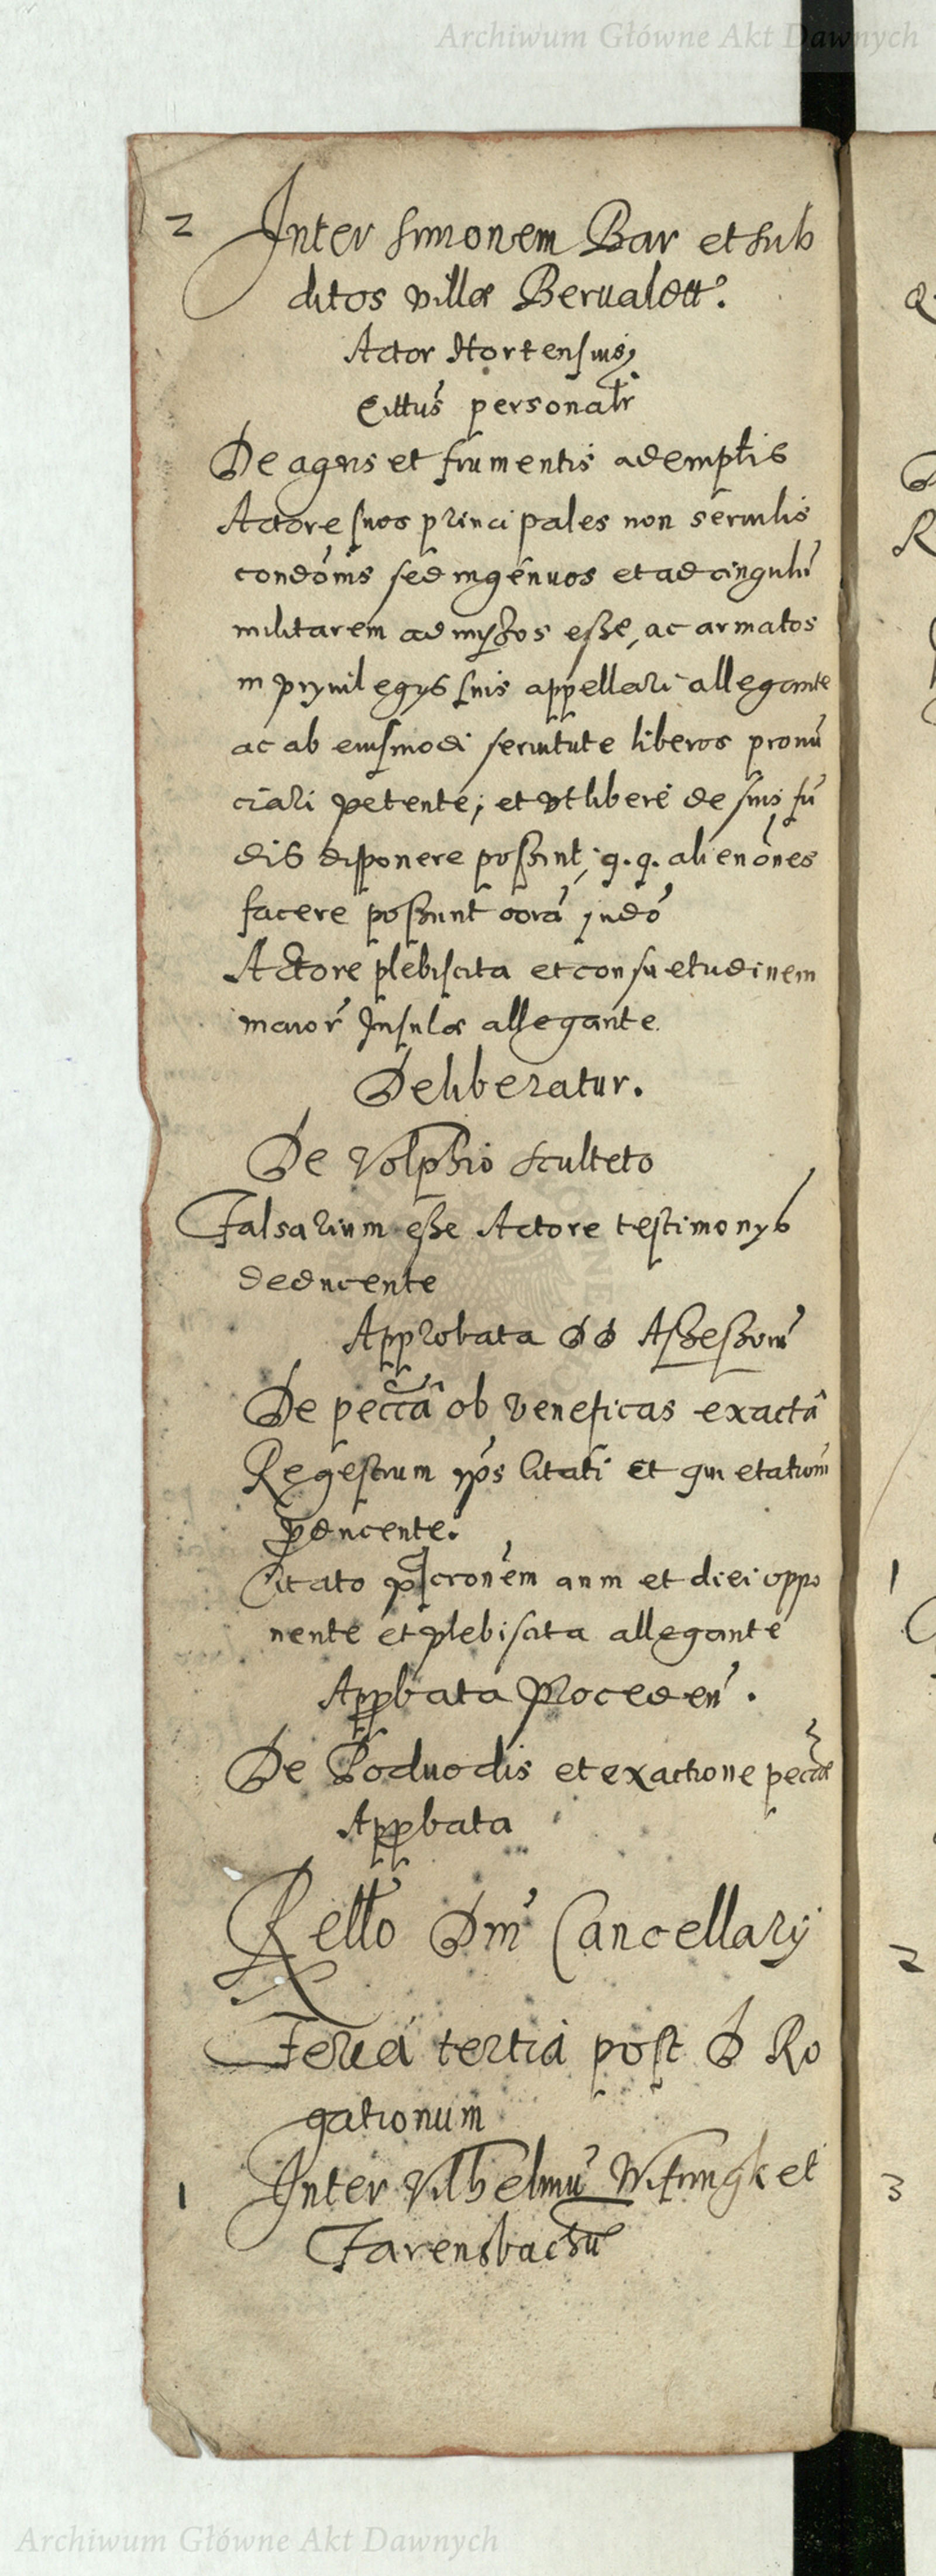 Archiwum Główne Akt Dawnych
2 Inter Simonem Bar et sub
ditos villæ Berualdt.
Actor Hortensius,
Cittus personalr
De agris et frumentis ademptis
Actore suos principales non seruilis
condonis sed ingenuos et ad cingulu
militarem admissos esse, ac armatos
in pryuilegys suis appellari allegante
ac ab eiusmodi seruitute liberos pronu
ciari petente, et vt libere de suis fu
dis disponere possint, q. q. alienones
facere possunt cora judo
Actore plebiscita et consuetudinem
maior Insulæ allegante
Deliberatur.
De Volphio sculteto
Falsarium esse Actore testimonys
deducente
Approbata DD Assessorum
De pecca ob veneficas exacta
Regestrum ips litati et quietationi
pducente.
Citato pscronem anni et diei oppo
nente et plebiscita allegante
Appbata Proceden.
De Poduodis et exactione peccæ
Appbata
Rello Dni Cancellary
Feria tertia post D Ro
gationum
1 Inter Vilhelmu Witungk et
Farensbachu
2
3
1
Archiwum Główne Akt Dawnych